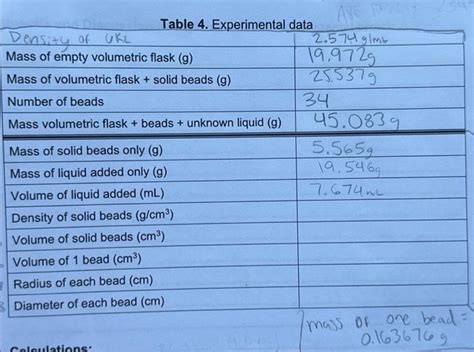 Table 4. Experimental data
Density of UKL 2.574 g/mL
Mass of empty volumetric flask (g) 19.972g
Mass of volumetric flask + solid beads (g) 25.537g
Number of beads 34
Mass volumetric flask + beads + unknown liquid (g) 45.083g
Mass of solid beads only (g) 5.565g
Mass of liquid added only (g) 19.546g
Volume of liquid added (mL) 7.674mL
Density of solid beads (g/cm³)
Volume of solid beads (cm³)
Volume of 1 bead (cm³)
Radius of each bead (cm)
Diameter of each bead (cm)
mass of one bead =
0.163676g
Calculations: